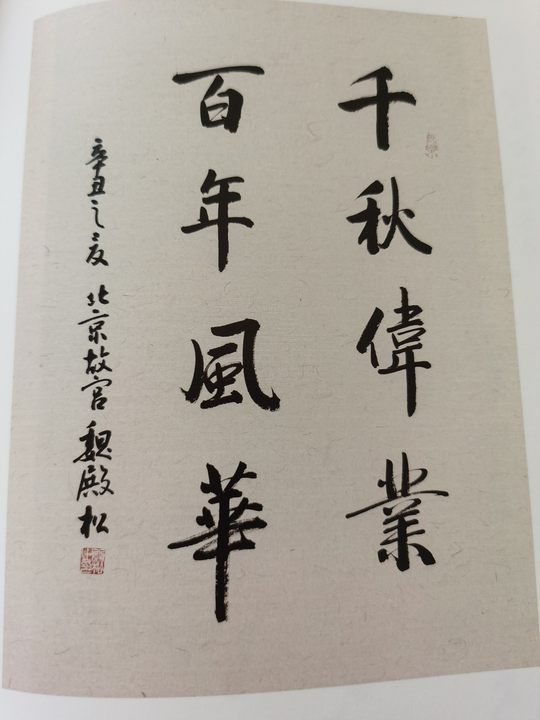 千秋偉業
百年風華
辛丑之夏 北京故宫 魏殿松